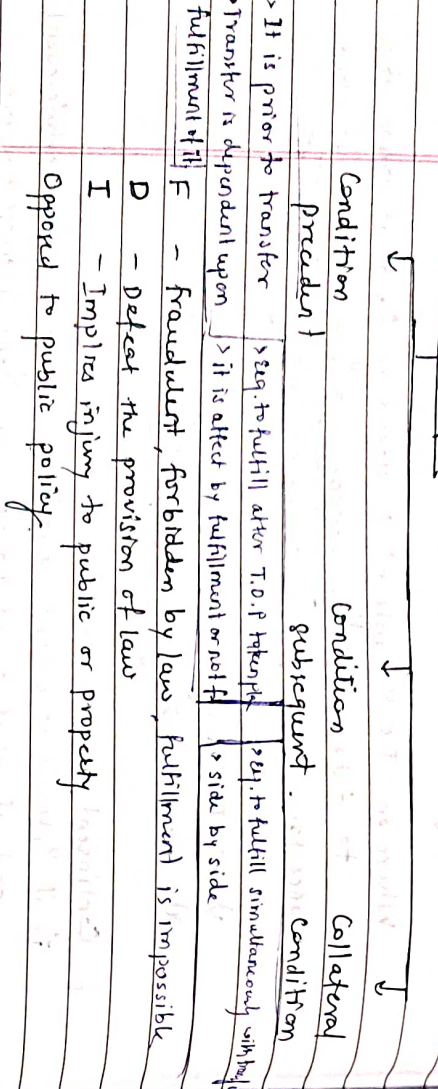 Condition precedent
Condition subsequent.
Collateral Condition
> It is prior to transfer
> Transfer is dependent upon
fulfillment of it
> req. to fulfill after T.O.P taken
> it is affect by fulfillment or not
> req. to fulfill simultaneously with
> side by side
F - fraudulent, forbidden by law, fulfillment is impossible
D - Defeat the provision of law
I - Implies injury to public or property
Opposed to public policy.